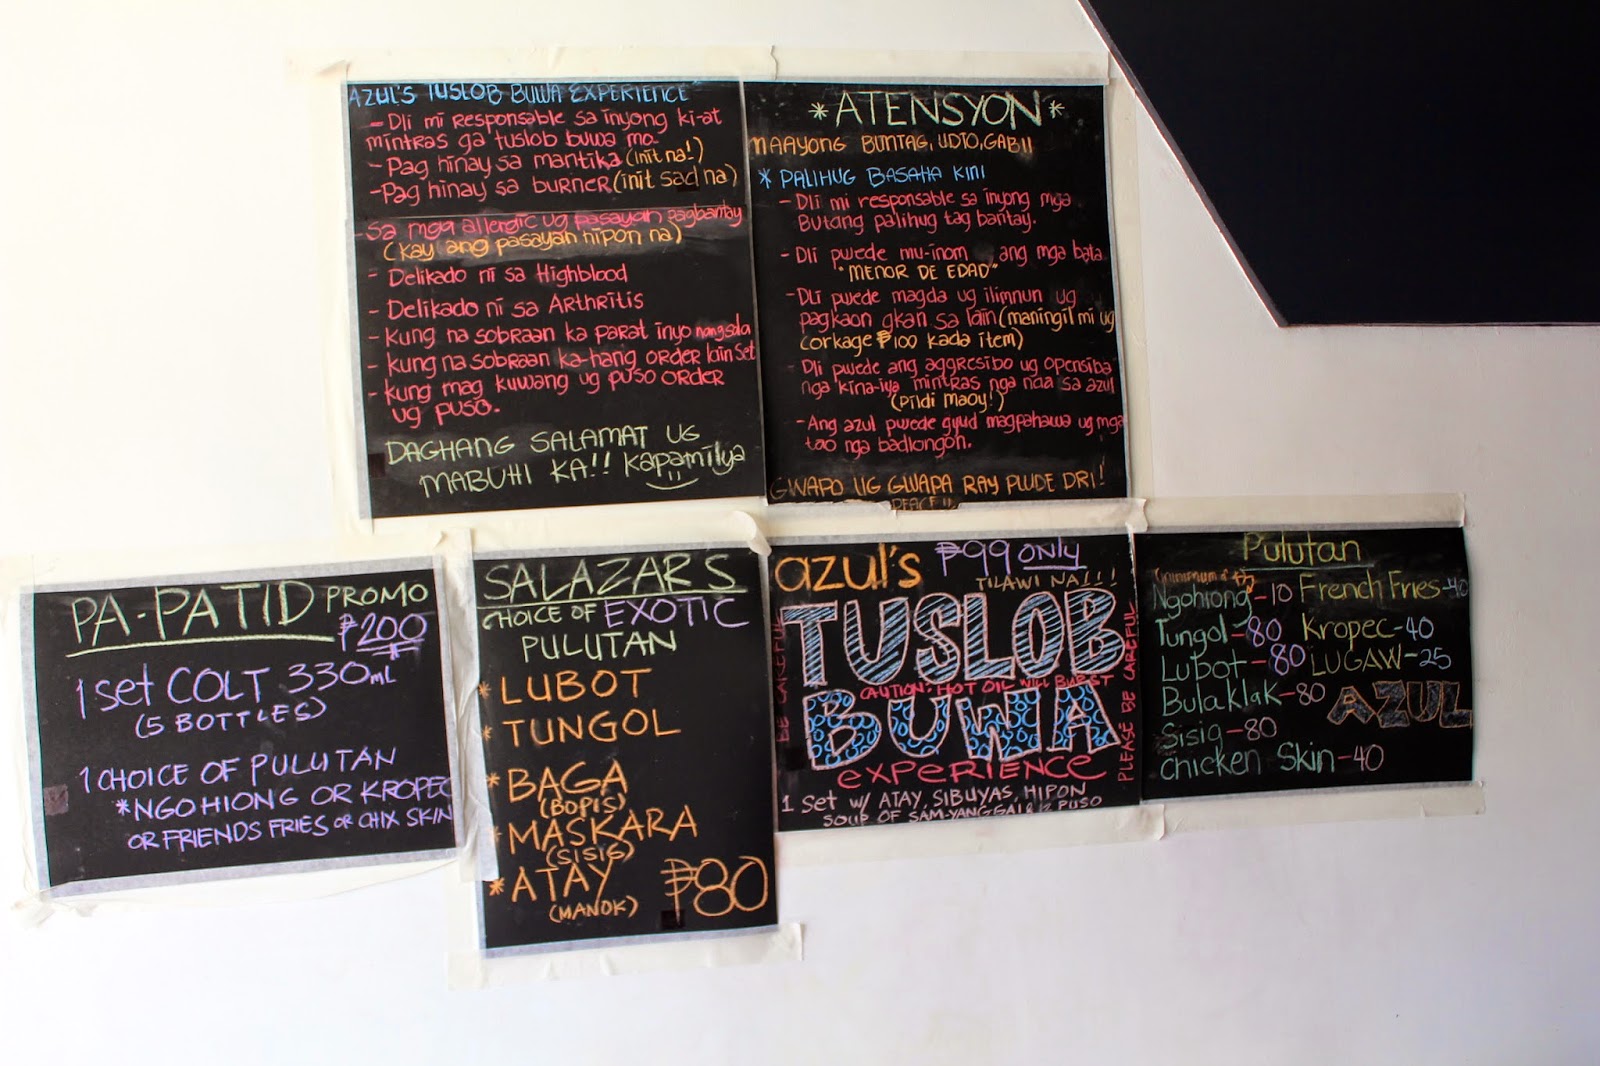 AZUL'S TUSLOB BUWA EXPERIENCE
- Dli mi responsable sa inyong ki-at
mintras ga tuslob buwa mo.
- Pag hinay sa mantika (init na!)
- Pag hinay sa burner (init sad na)
- Sa mga allergic ug pasayan pagbantay
(kay ang pasayan hipon na)
- Delikado ni sa Highblood
- Delikado ni sa Arthritis
- Kung na sobraan ka parat inyo nang sala
- kung na sobraan ka-hang order lain set
- kung mag kuwang ug puso order
ug puso.
DAGHANG SALAMAT UG
MABUHI KA!! Kapamilya
* ATENSYON *
MAAYONG BUNTAG, UDTO, GABII
* PALIHUG BASAHA KINI
- Dli mi responsable sa inyong mga
Butang palihug tag bantay.
- Dli pwede mu-inom ang mga bata
"MENOR DE EDAD"
- Dli pwede magda ug ilimnun ug
pagkaon gkan sa lain (maningil mi ug
corkage ₱100 kada item)
- Dli pwede ang aggresibo ug opensiba
nga kina-iya mintras nga naa sa azul
(Pildi maoy!)
- Ang azul pwede gyud magpahawa ug mga
tao nga badlongon.
GWAPO UG GWAPA RAY PWDE DRI!
PEACE!!
PA-PATID PROMO
₱200
1 set COLT 330mL
(5 BOTTLES)
1 CHOICE OF PULUTAN
*NGOHIONG OR KROPEC
OR FRIENDS FRIES OR CHIX SKIN
SALAZAR'S
CHOICE OF EXOTIC
PULUTAN
* LUBOT
* TUNGOL
* BAGA
(BOPIS)
* MASKARA
(SISIG)
* ATAY
(MANOK)
₱80
azul's ₱99 only
TILAWI NA!!!
TUSLOB
CAUTION: HOT OIL WILL BURST
BUWA
EXPERIENCE
1 set w/ ATAY, SIBUYAS, HIPON
SOUP OF SAM-YANG GAI & 2 PUSO
BE CAREFUL
PLEASE BE CAREFUL
Pulutan
Ngohiong-10 French Fries-40
Tungol-80 Kropec-40
Lubot-80 LUGAW-25
Bulaklak-80 AZUL
Sisig-80
chicken Skin-40